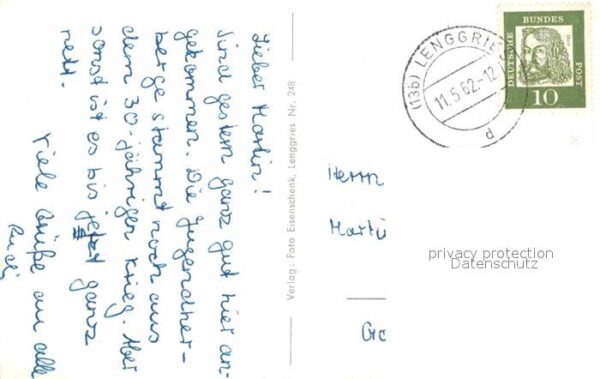 Lieber Martin!
Sind gestern ganz gut hier an-
gekommen. Die Jugendher-
berge stammt noch aus
dem 30-jährigen Krieg. Aber
sonst ist es bis jetzt ganz
nett.
Viele Grüße an alle
Rudi
Verlag: Foto Eisenschenk, Lenggries Nr. 248
(13b) LENGGRIES
11.5.62-12
d
DEUTSCHE
BUNDES
POST
10
Herrn
Martin
privacy protection
Datenschutz